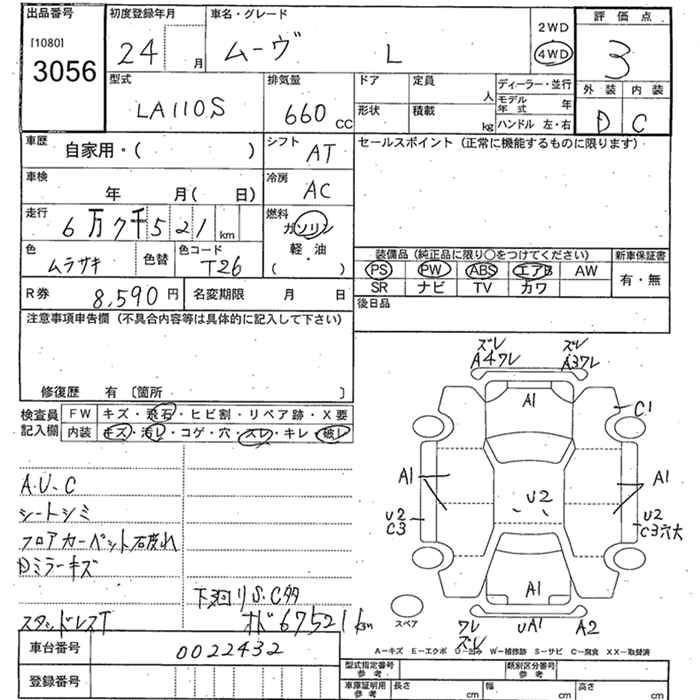 出品番号
[1080]
3056
初度登録年月
24 月
車名・グレード
ムーヴ L
2WD
4WD
評価点
3
外装 内装
D C
型式
LA110S
排気量
660 cc
ドア 定員
人
形状 積載
kg
ディーラー・並行
モデル年式 年
ハンドル 左・右
車歴
自家用・( )
シフト
AT
セールスポイント (正常に機能するものに限ります)
車検
年 月( 日)
冷房
AC
走行
6万7千521 km
燃料
ガソリン
軽・油
( )
色
ムラサキ
色替
色コード
T26
装備品 (純正品に限り○をつけてください)
新車保証書
PS PW ABS エアB AW
有・無
SR ナビ TV カワ
R券
8,590円
名変期限 月 日
後日品
注意事項申告欄 (不具合内容等は具体的に記入して下さい)
修復歴 有 〔箇所 〕
検査員
記入欄
FW キズ・飛石・ヒビ割・リペア跡・X要
内装 キズ・汚レ・コゲ・穴・スレ・キレ・破レ
A.U.C
シートシミ
フロアカーペット右皮れ
Dミラーキズ
下廻りS.C多
スタッドレスT
オド67521km
ズレ ズレ
A4ワレ A3ワレ
A1
C1
A1 A1
U2
U2
C3
U2
C3穴大
A1
スペア
ワレ
ズレ
UA1 A2
A-キズ E-エクボ U-凹み W-補修跡 S-サビ C-腐食 XX-取替済
車台番号
0022432
登録番号
型式指定番号
参考
類別区分番号
参考
車庫証明用
参考
長さ cm
幅 cm
高さ cm